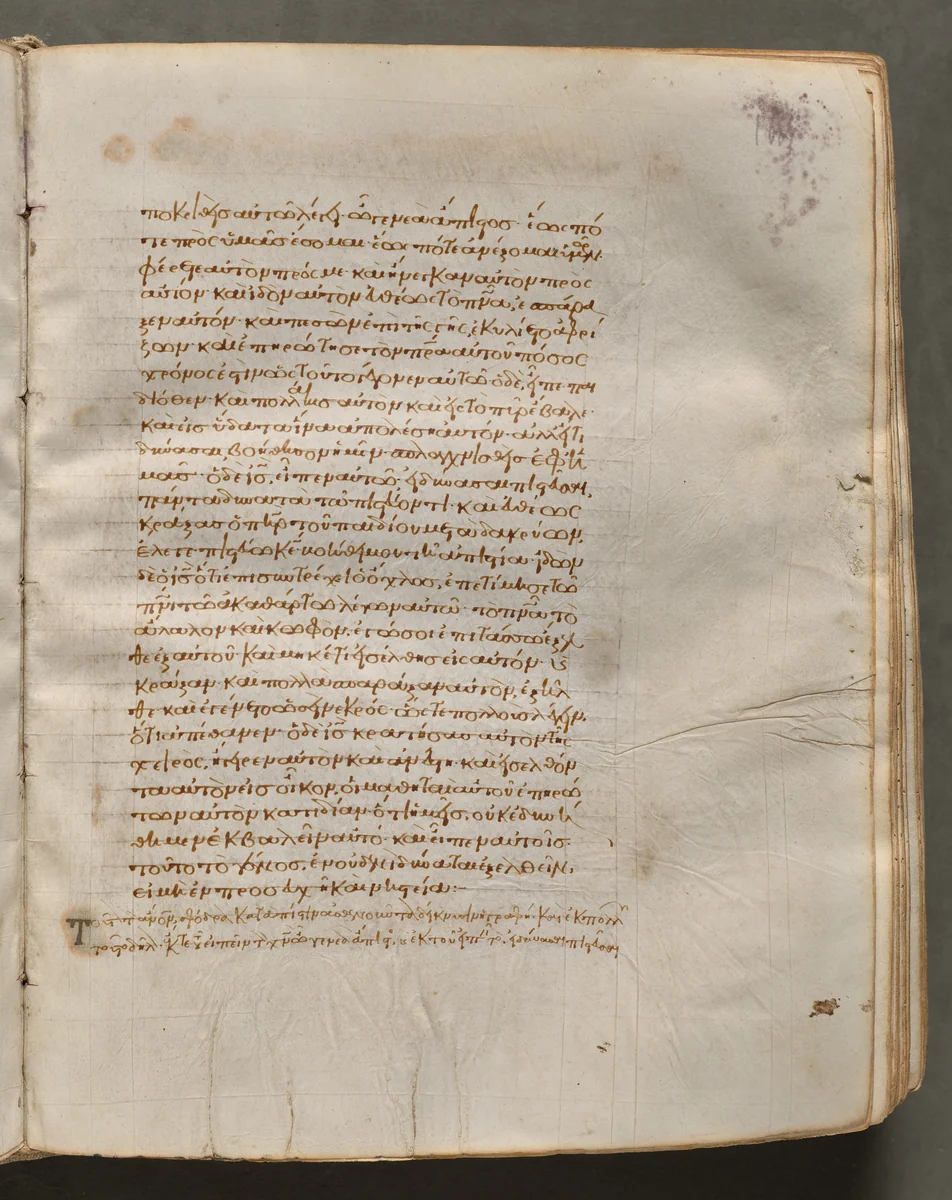 ποκριθεὶς αὐτῶ λέγει· ὦ γενεὰ ἄπιστος· ἕως πό
τε πρὸς ὑμᾶς ἔσομαι· ἕως πότε ἀνέξομαι ὑμῶν·
φέρετε αὐτὸν πρός με· καὶ ἤνεγκαν αὐτὸν πρὸς
αὐτόν· καὶ ἰδὸν αὐτὸν εὐθέως τὸ πνᾶ, ἐσπάρα
ξεν αὐτόν· καὶ πεσὼν ἐπὶ τῆς γῆς, ἐκυλίετο ἀφρί
ζων· καὶ ἐπηρώτησε τὸν πρᾶ αὐτοῦ πόσος
χρόνος ἐστὶν ὡς τοῦτο γέγονεν αὐτῶ ὁ δὲ, εἶπε παι
διόθεν· καὶ πολλάκις αὐτὸν καὶ εἰς τὸ πῦρ ἔβαλε·
καὶ εἰς ὕδατα ἵνα ἀπολέσῃ αὐτόν· ἀλλ εἴ τι
δύνασαι, βοήθησον ἡμῖν· σπλαγχνισθεὶς ἐφ ἡ
μᾶς· ὁ δὲ ἰς, εἶπεν αὐτῶ· εἰ δύνασαι πιστεῦσαι,
πάντα δυνατὰ τῶ πιστεύοντι· καὶ εὐθέως
κράξας ὁ πηρ τοῦ παιδίου μετὰ δακρύων,
ἔλεγε· πιστεύω κε· βοήθει μου τῆ ἀπιστία· ἰδὼν
δὲ ὁ ἰς ὅτι ἐπισυντρέχει ὁ ὄχλος, ἐπετίμησε τῶ
πνι τῶ ἀκαθάρτω λέγων αὐτῶ· τὸ πνᾶ τὸ
ἄλαλον καὶ κωφόν, ἐγώ σοι ἐπιτάσσω ἔξελ
θε ἐξ αὐτοῦ· καὶ μηκέτι εἰσέλθῃς εἰς αὐτόν· καὶ
κράξαν· καὶ πολλὰ σπαράξαν αὐτὸν, ἐξῆλ
θε· καὶ ἐγένετο ὡσεὶ νεκρός· ὥστε πολλοὺς λέγειν,
ὅτι ἀπέθανεν· ὁ δὲ ἰς κρατήσας αὐτὸν τῆς
χειρὸς, ἤγειρεν αὐτὸν καὶ ἀνέστη· καὶ εἰσελθόν
τα αὐτὸν εἰς οἶκον, οἱ μαθηταὶ αὐτοῦ ἐπηρώ
των αὐτὸν κατιδίαν· ὅτι ἡμεῖς, οὐκ ἐδυνή
θημεν ἐκβαλεῖν αὐτό· καὶ εἶπεν αὐτοῖς·
τοῦτο τὸ γένος, ἐν οὐδενὶ δύναται ἐξελθεῖν,
εἰ μὴ ἐν προσευχῆ καὶ νηστεία:–